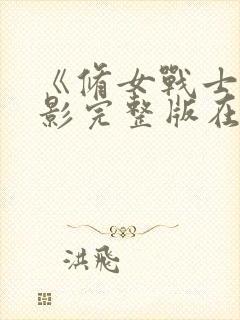 《脩女戰士
影完整版在
洪飛